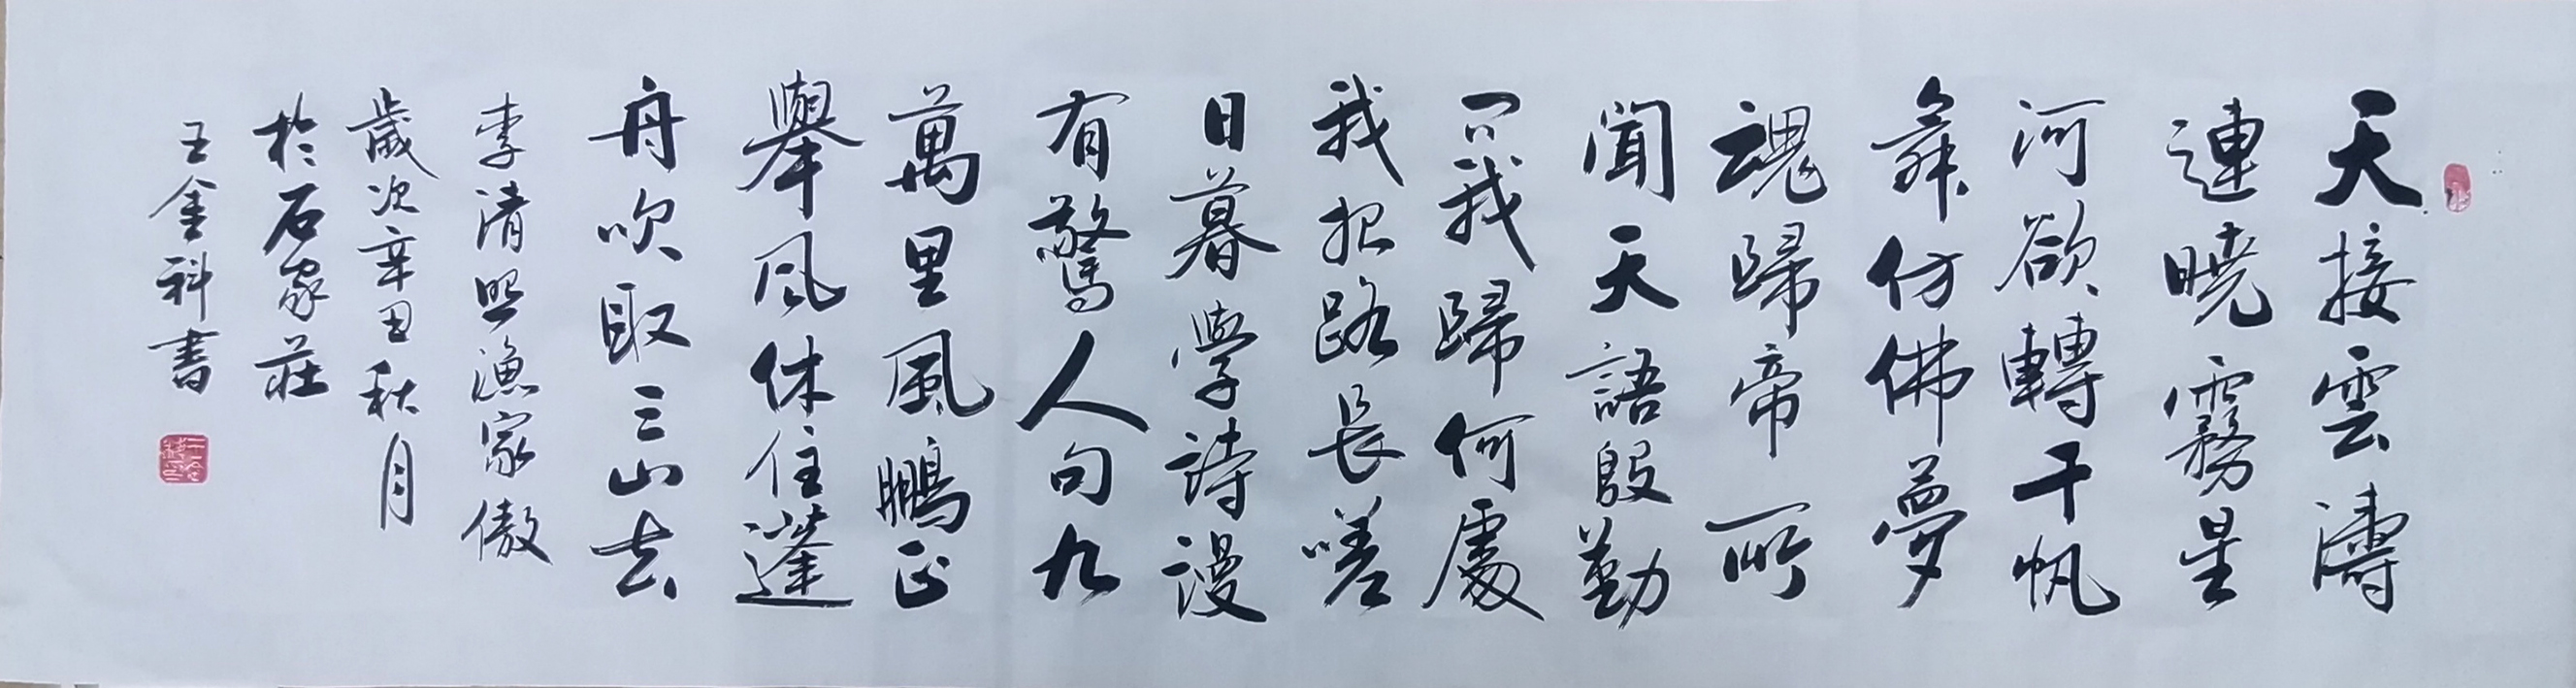 天接雲濤
連曉霧星
河欲轉千帆
舞仿佛夢
魂歸帝所
聞天語殷勤
問我歸何處
我报路長嗟
日暮學詩謾
有驚人句九
萬里風鵬正
舉風休住蓬
舟吹取三山去
李清照漁家傲
歲次辛丑秋月
於石家莊
王金科書